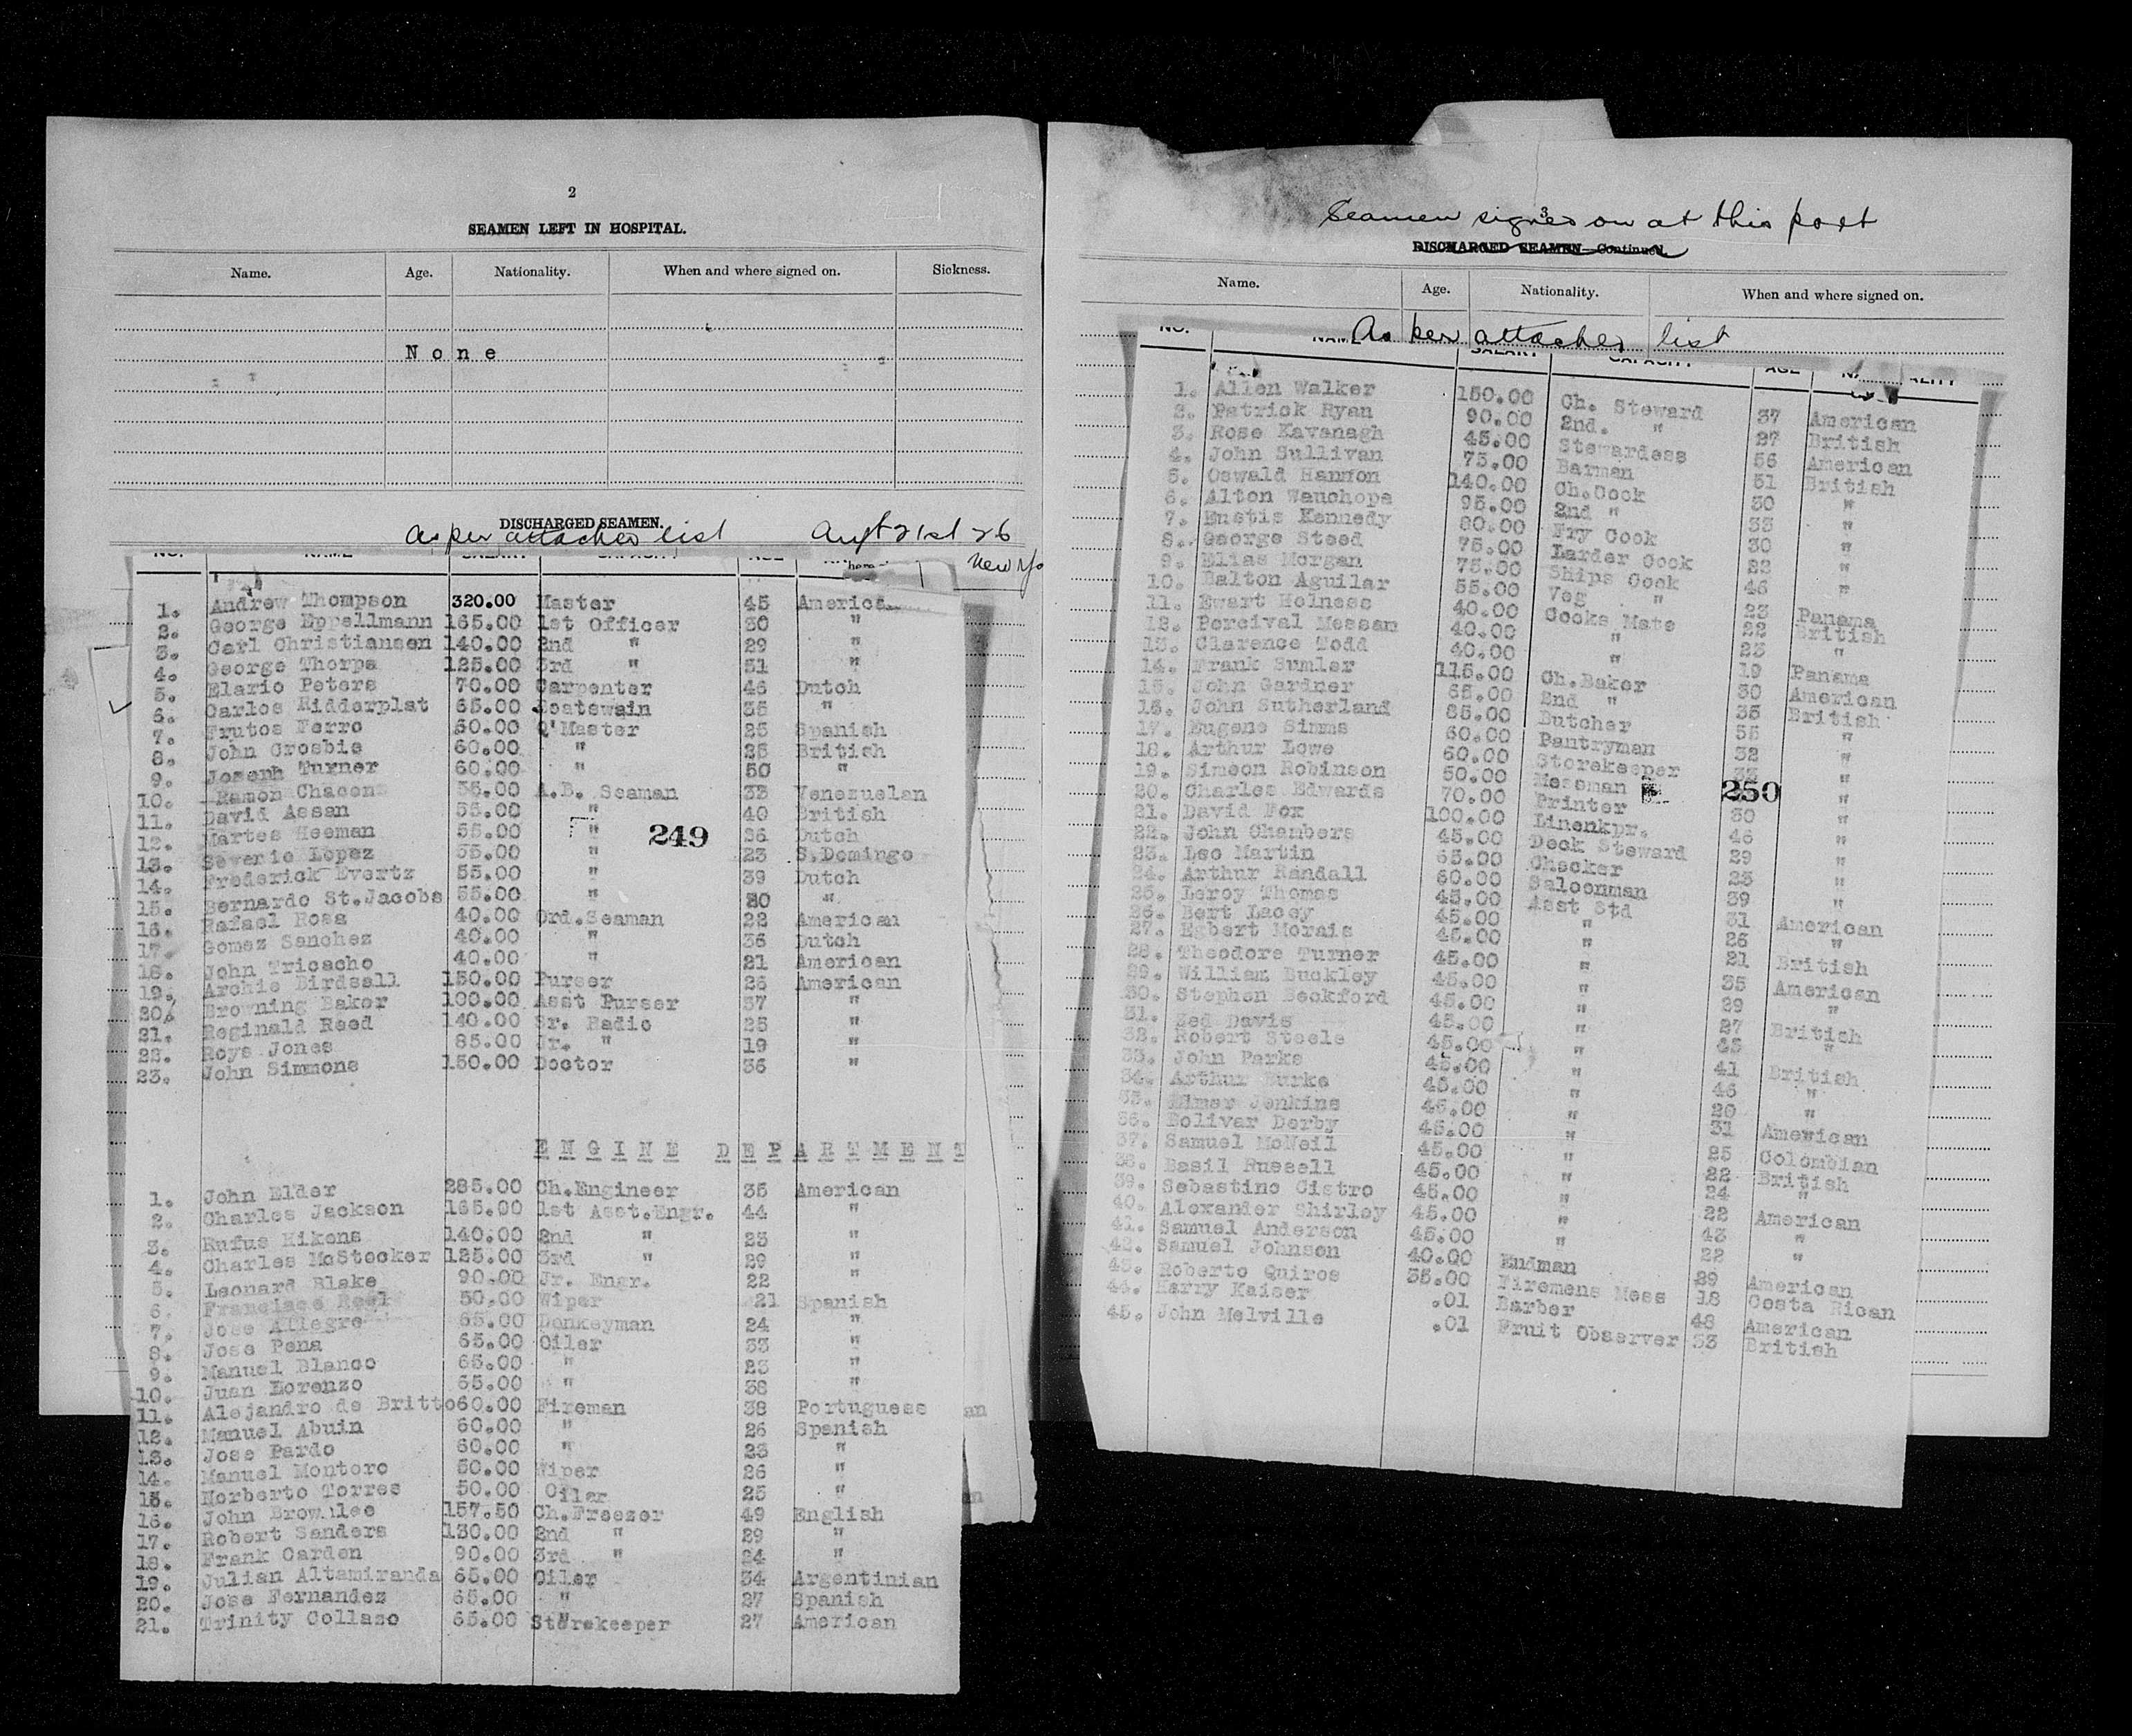 2
SEAMEN LEFT IN HOSPITAL.
Name. Age. Nationality. When and where signed on. Sickness.
None
DISCHARGED SEAMEN.
As per attached list Augt 21st 26
New Yo
NO. NAME SALARY CAPACITY AGE
1. Andrew Thompson 320.00 Master 45 America
2. George Eppellmann 165.00 1st Officer 30 "
3. Carl Christiansen 140.00 2nd " 29 "
4. George Thorpe 125.00 3rd " 31 "
5. Elario Peters 70.00 Carpenter 46 Dutch
6. Carlos Ridderplat 65.00 Boatswain 35 "
7. Frutos Ferro 60.00 Q'Master 25 Spanish
8. John Crosbie 60.00 " 25 British
9. Joseph Turner 60.00 " 50 "
10. Ramon Chacon 55.00 A.B. Seaman 33 Venezuelan
11. David Assan 55.00 " 40 British
12. Martes Heeman 55.00 " 36 Dutch
249
13. Severio Lopez 55.00 " 23 S.Domingo
14. Frederick Evertz 55.00 " 39 Dutch
15. Bernardo St.Jacobs 55.00 " 20 "
16. Rafael Rosa 40.00 Ord.Seaman 22 American
17. Gomez Sanchez 40.00 " 36 Dutch
18. John Tricacho 40.00 " 21 American
19. Archie Birdsall 150.00 Purser 26 American
20. Browning Baker 100.00 Asst Purser 37 "
21. Reginald Reed 140.00 Sr. Radio 25 "
22. Roys Jones 85.00 Jr. " 19 "
23. John Simmons 150.00 Doctor 36 "
ENGINE DEPARTMENT
1. John Elder 285.00 Ch.Engineer 35 American
2. Charles Jackson 165.00 1st Asst.Engr. 44 "
3. Rufus Hikens 140.00 2nd " 23 "
4. Charles McStocker 125.00 3rd " 29 "
5. Leonard Blake 90.00 Jr. Engr. 22 "
6. Francisco 50.00 Wiper 21 Spanish
7. Jose Allegre 65.00 Donkeyman 24 "
8. Jose Pena 65.00 Oiler 33 "
9. Manuel Blanco 65.00 " 23 "
10. Juan Lorenzo 65.00 " 38 "
11. Alejandro de Britto 60.00 Fireman 38 Portuguese
12. Manuel Abuin 60.00 " 26 Spanish
13. Jose Pardo 60.00 " 23 "
14. Manuel Montoro 50.00 Wiper 26 "
15. Norberto Torres 50.00 Oiler 25 "
16. John Brownlee 157.50 Ch.Freezer 49 English
17. Robert Sanders 130.00 2nd " 29 "
18. Frank Carden 90.00 3rd " 24 "
19. Julian Altamiranda 65.00 Oiler 34 Argentinian
20. Jose Fernandez 65.00 " 27 Spanish
21. Trinity Collazo 65.00 Storekeeper 27 American
3
Seamen signed on at this port
DISCHARGED SEAMEN—Continued.
Name. Age. Nationality. When and where signed on.
As per attached list
NO. NAME SALARY CAPACITY AGE NATIONALITY
1. Allen Walker 150.00 Ch. Steward 37 American
2. Patrick Ryan 90.00 2nd. " 27 British
3. Rose Kavanagh 45.00 Stewardess 56 American
4. John Sullivan 75.00 Barman 51 British
5. Oswald Hannon 140.00 Ch.Cook 30 "
6. Alton Wauchope 95.00 2nd " 33 "
7. Eustis Kennedy 80.00 Fry Cook 30 "
8. George Steed 75.00 Larder Cook 22 "
9. Elias Morgan 75.00 Ships Cook 46 "
10. Dalton Aguilar 55.00 Veg " 23 Panama
11. Ewart Holness 40.00 Cooks Mate 22 British
12. Percival Messam 40.00 " 23 "
13. Clarence Todd 40.00 " 19 Panama
14. Frank Sumler 115.00 Ch.Baker 30 American
15. John Gardner 65.00 2nd " 35 British
16. John Sutherland 85.00 Butcher 55 "
17. Eugene Simms 60.00 Pantryman 32 "
18. Arthur Lowe 60.00 Storekeeper 33 "
19. Simeon Robinson 50.00 Messman "
250
20. Charles Edwards 70.00 Printer 30 "
21. David Fox 100.00 Linenkpr. 46 "
22. John Chambers 45.00 Deck Steward 29 "
23. Leo Martin 65.00 Checker 23 "
24. Arthur Randall 60.00 Saloonman 39 "
25. Leroy Thomas 45.00 Asst Std 31 American
26. Bert Lacey 45.00 " 26 "
27. Egbert Morais 45.00 " 21 British
28. Theodore Turner 45.00 " 35 American
29. William Buckley 45.00 " 29 "
30. Stephen Beckford 45.00 " 27 British
31. Zed Davis 45.00 " "
32. Robert Steele 45.00 " 41 British
33. John Parks 45.00 " 46 "
34. Arthur Burke 45.00 " 20 "
35. Elmer Jenkins 45.00 " 31 American
36. Bolivar Derby 45.00 " 25 Colombian
37. Samuel McNeil 45.00 " 22 British
38. Basil Russell 45.00 " 24 "
39. Sebastino Cistro 45.00 " 22 American
40. Alexander Shirley 45.00 " 43 "
41. Samuel Anderson 45.00 " 22 "
42. Samuel Johnson 40.00 Endman 29 American
43. Roberto Quiros 35.00 Firemens Mess 18 Costa Rican
44. Harry Kaiser .01 Barber 48 American
45. John Melville .01 Fruit Observer 53 British